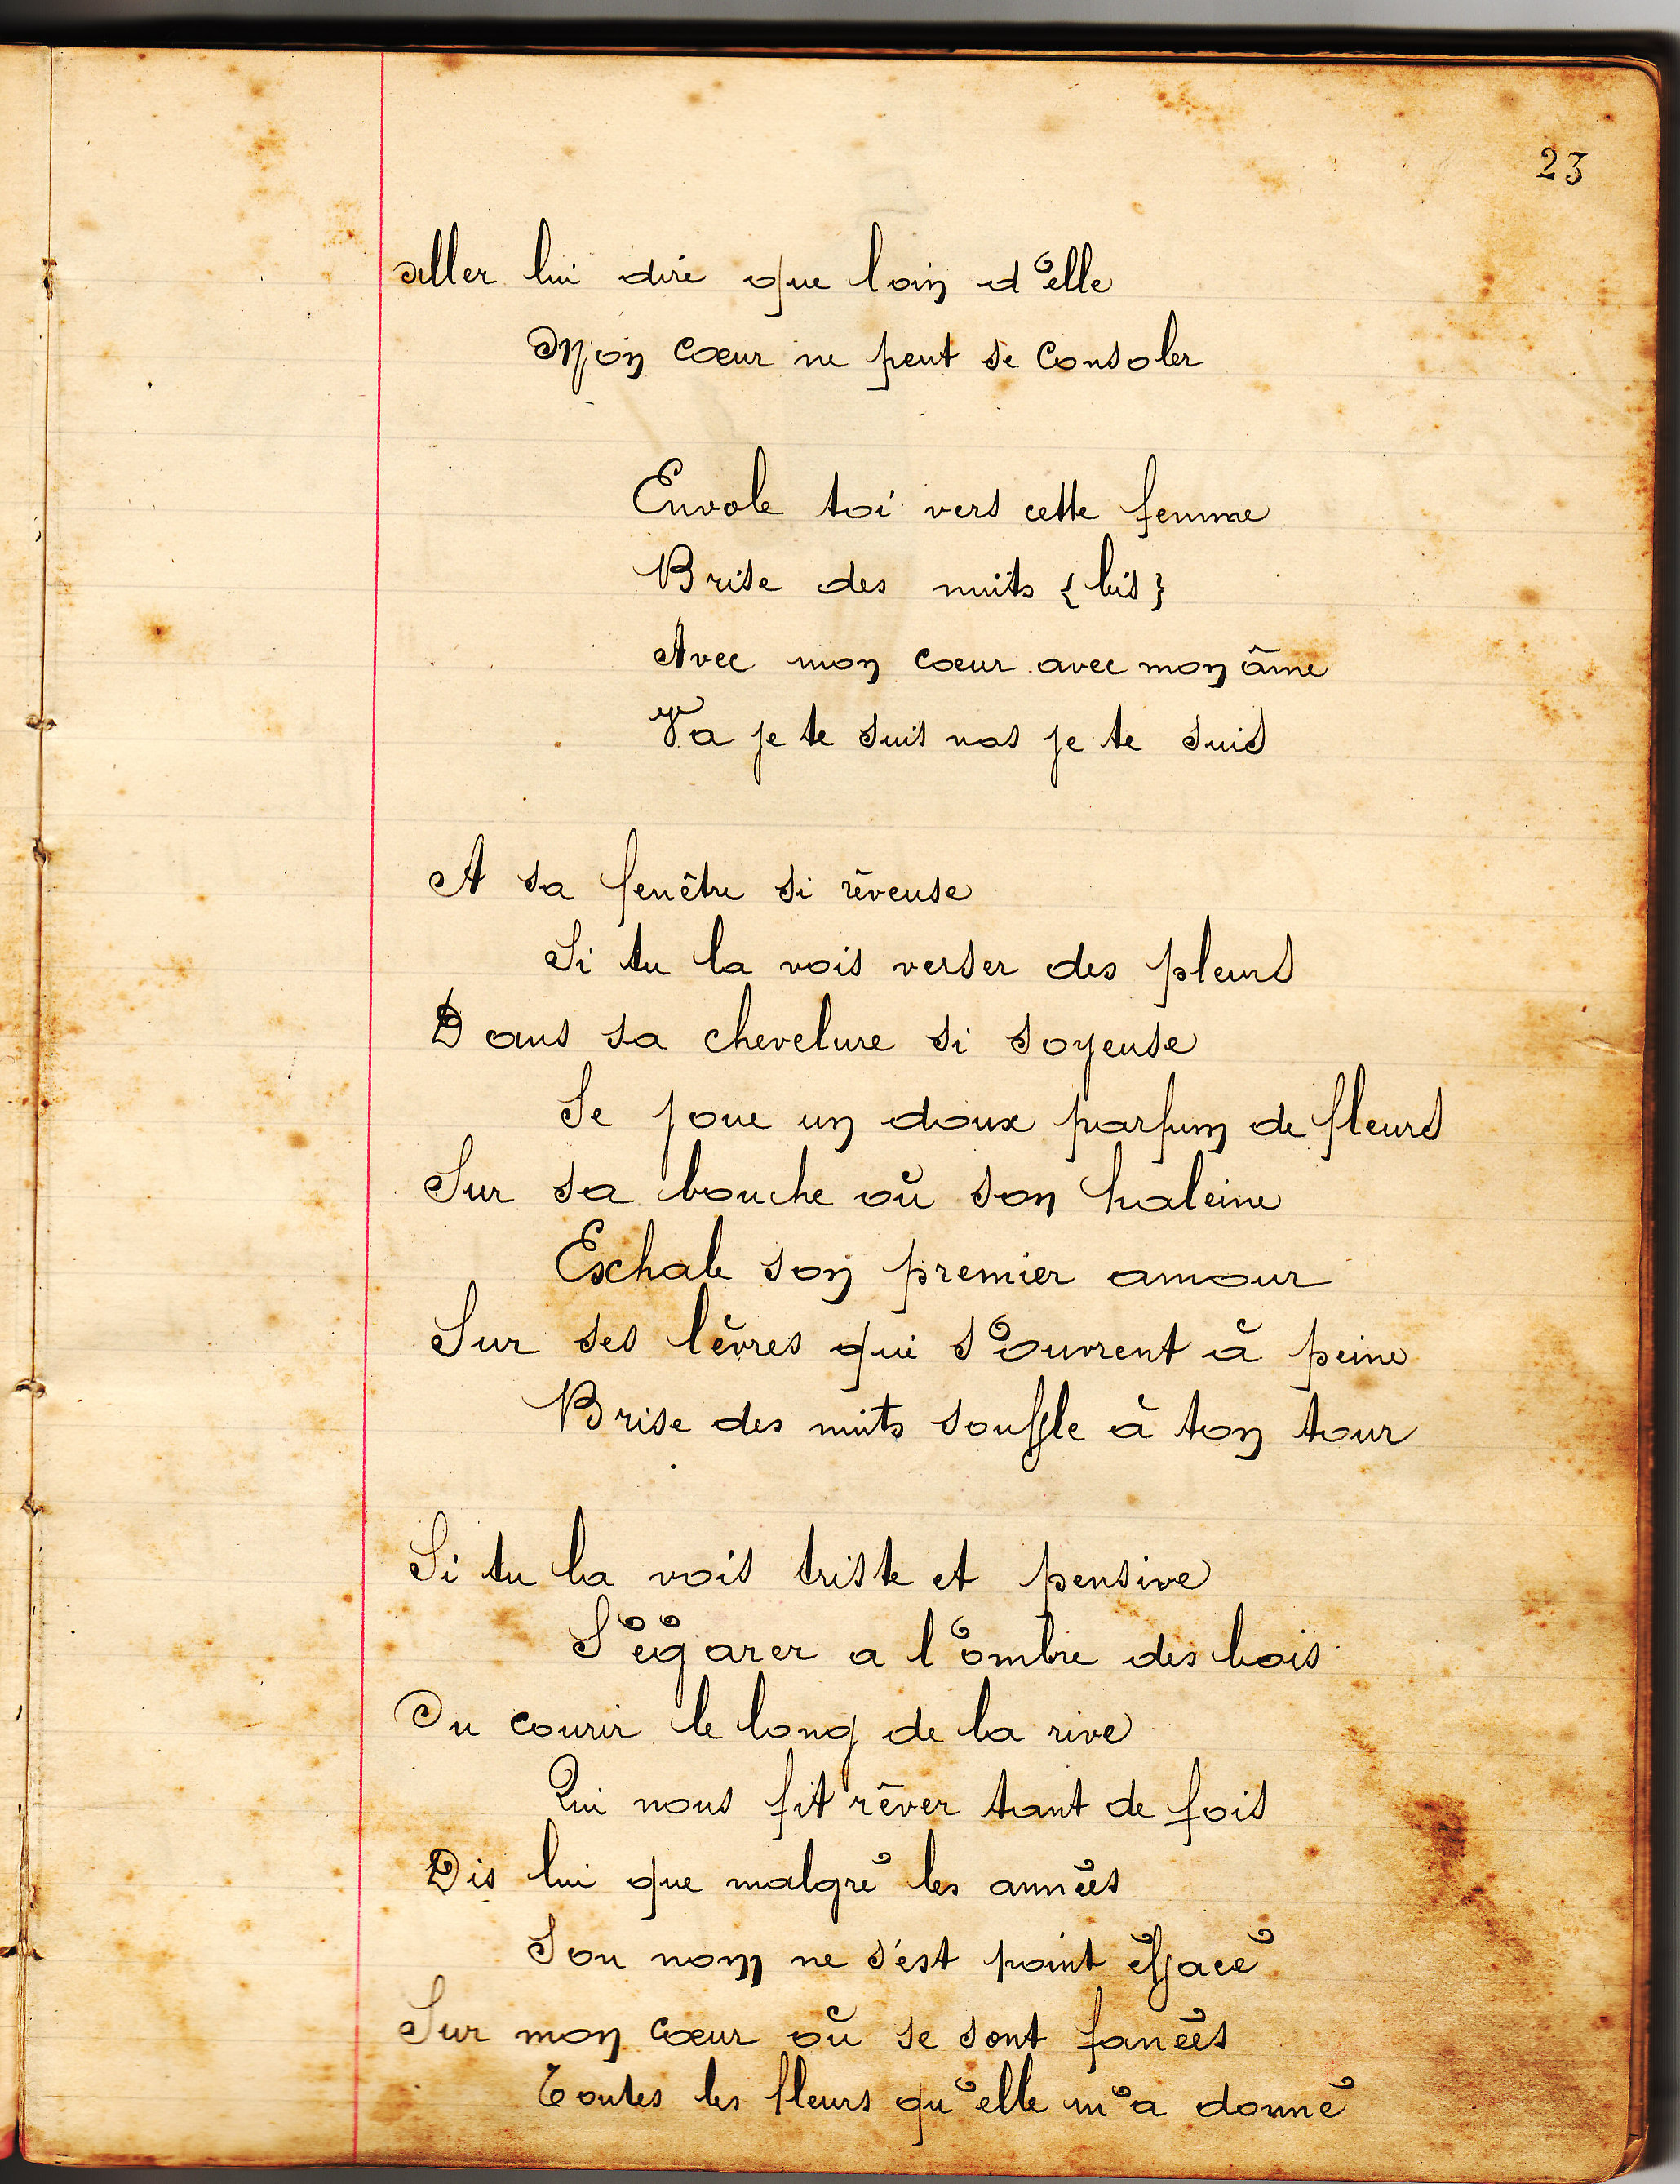 23
aller lui dire que loin d'elle
Mon cœur ne peut se consoler
Envole toi vers cette femme
Brise des nuits {bis}
Avec mon cœur avec mon âme
Va je te suis vas je te suis
A sa fenêtre si rêveuse
Si tu la vois verser des pleurs
Dans sa chevelure si soyeuse
Se joue un doux parfum de fleurs
Sur sa bouche où son haleine
Exhale son premier amour
Sur ses lèvres qui s'ouvrent à peine
Brise des nuits souffle à ton tour
Si tu la vois triste et pensive
S'égarer a l'ombre des bois
Ou courir le long de la rive
Qui nous fit rêver tant de fois
Dis lui que malgré les années
Son nom ne s'est point éffacé
Sur mon cœur où se sont fanées
Toutes les fleurs qu'elle m'a donné